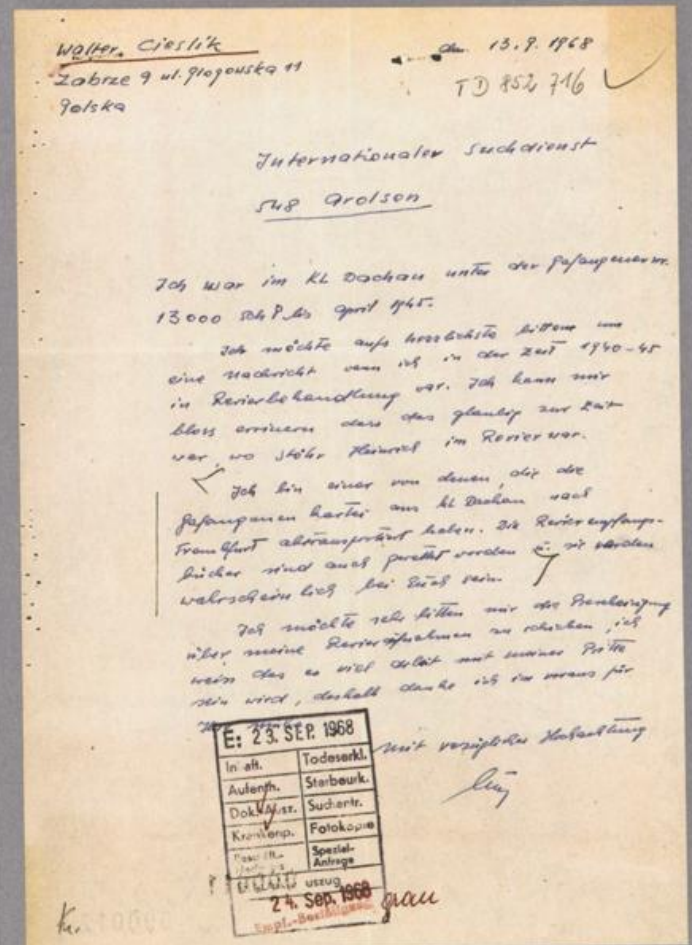 Walter. Cieslik
den 13.9.1968
Zabrze 9 ul. Glogowska 11
TD 852 716
Polska
Internationaler Suchdienst
548 Arolsen
Ich war im KL Dachau unter der Gefangenennr.
13000 Sch P. bis April 1945.
Ich möchte aufs herzlichste bitten um
eine Nachricht wann ich in der Zeit 1940-45
in Revierbehandlung war. Ich kann mir
bloss erinnern dass das glaubig zur Zeit
war, wo Stöhr Heinrich im Revier war.
Ich bin einer von denen, die die
Gefangenen Kartei aus KL Dachau nach
Frankfurt abtransportiert haben. Die Revierempfangs-
bücher sind auch gerettet worden u. sie werden
wahrscheinlich bei Euch sein.
Ich möchte sehr bitten mir die Bescheinigung
über meine Revieraufnahmen zu schicken, ich
weiss das es viel Arbeit mit meiner Bitte
sein wird, deshalb danke ich im voraus für
mit vorzüglicher Hochachtung
E: 23. SEP. 1968
Inhaft. Todeserkl.
Aufenth. Sterbeurk.
Dok. Ausz. Suchantr.
Krankenp. Fotokopie
Spezial-
Anfrage
uszug
24. Sep. 1968 grau
Empf.-Bestätigung